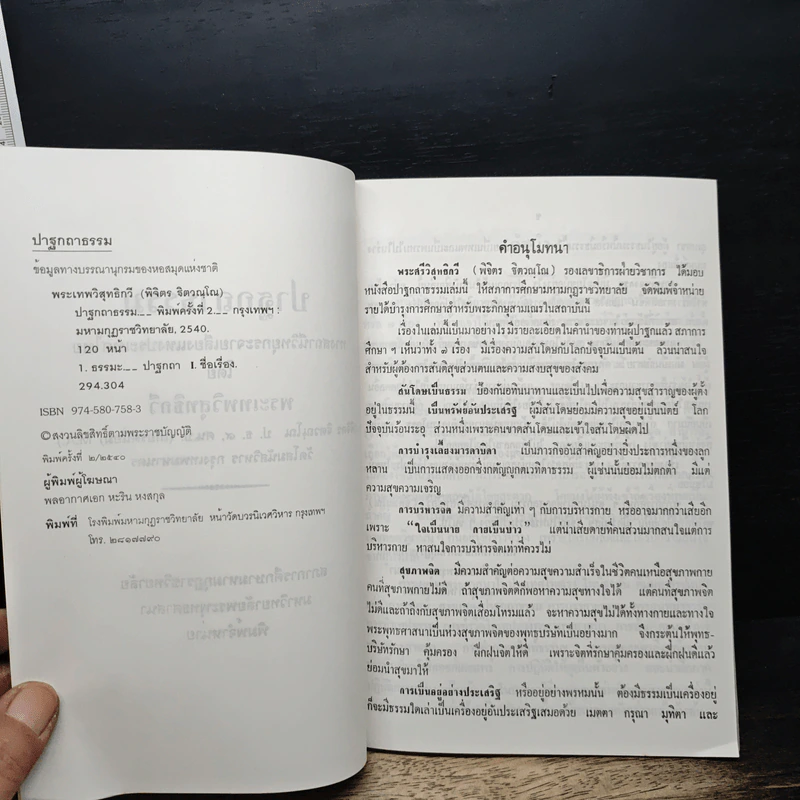 ปาฐกถาธรรม
ข้อมูลทางบรรณานุกรมของหอสมุดแห่งชาติ
พระเทพวิสุทธิกวี (พิจิตร ฐิตวณฺโณ)
ปาฐกถาธรรม.__ พิมพ์ครั้งที่ 2.__ กรุงเทพฯ :
มหามกุฏราชวิทยาลัย, 2540.
120 หน้า
1. ธรรมะ.__ ปาฐกถา I. ชื่อเรื่อง.
294.304
ISBN 974-580-758-3
© สงวนลิขสิทธิ์ตามพระราชบัญญัติ
พิมพ์ครั้งที่ ๒/๒๕๔๐
ผู้พิมพ์ผู้โฆษณา
พลอากาศเอก หะริน หงสกุล
พิมพ์ที่ โรงพิมพ์มหามกุฏราชวิทยาลัย หน้าวัดบวรนิเวศวิหาร กรุงเทพฯ
โทร. ๒๘๑๗๗๙๐
คำอนุโมทนา
พระศรีวิสุทธิกวี (พิจิตร ฐิตวณฺโณ) รองเลขาธิการฝ่ายวิชาการ ได้มอบ
หนังสือปาฐกถาธรรมเล่มนี้ ให้สภาการศึกษามหามกุฏราชวิทยาลัย จัดพิมพ์จำหน่าย
รายได้บำรุงการศึกษาสำหรับพระภิกษุสามเณรในสถาบันนี้
เรื่องในเล่มนี้เป็นมาอย่างไร มีรายละเอียดในคำนำของท่านผู้ปาฐกแล้ว สภาการ
ศึกษา ฯ เห็นว่าทั้ง ๗ เรื่อง มีเรื่องความสันโดษกับโลกปัจจุบันเป็นต้น ล้วนน่าสนใจ
สำหรับผู้ต้องการสันติสุขส่วนตนและความสงบสุขของสังคม
สันโดษเป็นธรรม ป้องกันอทินนาทานและเป็นไปเพื่อความสุขสำราญของผู้ตั้ง
อยู่ในธรรมนี้ เป็นทรัพย์อันประเสริฐ ผู้มีสันโดษย่อมมีความสุขอยู่เป็นนิตย์ โลก
ปัจจุบันร้อนระอุ ส่วนหนึ่งเพราะคนขาดสันโดษและเข้าใจสันโดษผิดไป
การบำรุงเลี้ยงมารดาบิดา เป็นภารกิจอันสำคัญอย่างยิ่งประการหนึ่งของลูก
หลาน เป็นการแสดงออกซึ่งกตัญญูกตเวทิตาธรรม ผู้เช่นนั้นย่อมไม่ตกต่ำ มีแต่
ความสุขความเจริญ
การบริหารจิต มีความสำคัญเท่า ๆ กับการบริหารกาย หรืออาจมากกว่าเสียอีก
เพราะ “ใจเป็นนาย กายเป็นบ่าว” แต่น่าเสียดายที่คนส่วนมากสนใจแต่การ
บริหารกาย หาสนใจการบริหารจิตเท่าที่ควรไม่
สุขภาพจิต มีความสำคัญต่อความสุขความสำเร็จในชีวิตคนเหนือสุขภาพกาย
คนที่สุขภาพกายไม่ดี ถ้าสุขภาพจิตดีก็พอหาความสุขทางใจได้ แต่คนที่สุขภาพจิต
ไม่ดีและถ้าถึงกับสุขภาพจิตเสื่อมโทรมแล้ว จะหาความสุขไม่ได้ทั้งทางกายและทางใจ
พระพุทธศาสนาเป็นห่วงสุขภาพจิตของพุทธบริษัทเป็นอย่างมาก จึงกระตุ้นให้พุทธ-
บริษัทรักษา คุ้มครอง ฝึกฝนจิตให้ดี เพราะจิตที่รักษาคุ้มครองและฝึกฝนดีแล้ว
ย่อมนำสุขมาให้
การเป็นอยู่อย่างประเสริฐ หรืออยู่อย่างพรหมนั้น ต้องมีธรรมเป็นเครื่องอยู่
ก็จะมีธรรมใดเล่าเป็นเครื่องอยู่อันประเสริฐเสมอด้วย เมตตา กรุณา มุทิตา และ